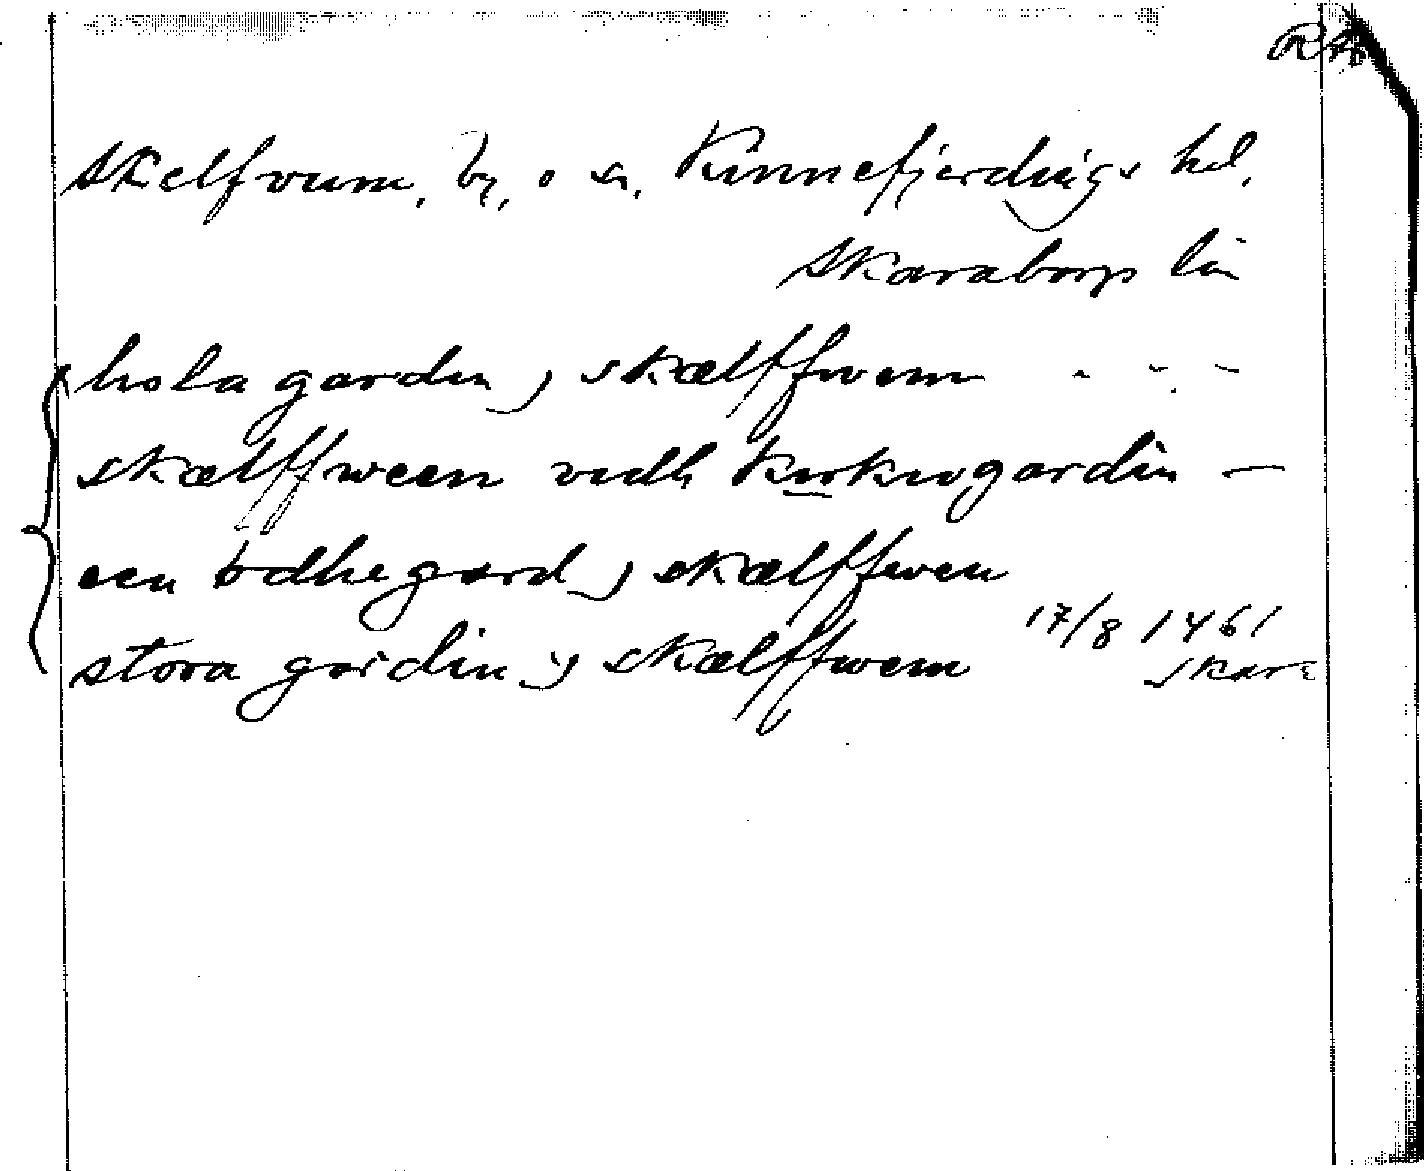 RA
Skelfvum, by, o sn, Kinnefjerdings hd,
Skaraborgs län
hola gardin j skælffwem - - -
skælffween vidh kirkiogardin —
een ödhegard j skælffwen
stora gardin j skælffwem 17/8 1461
Skara